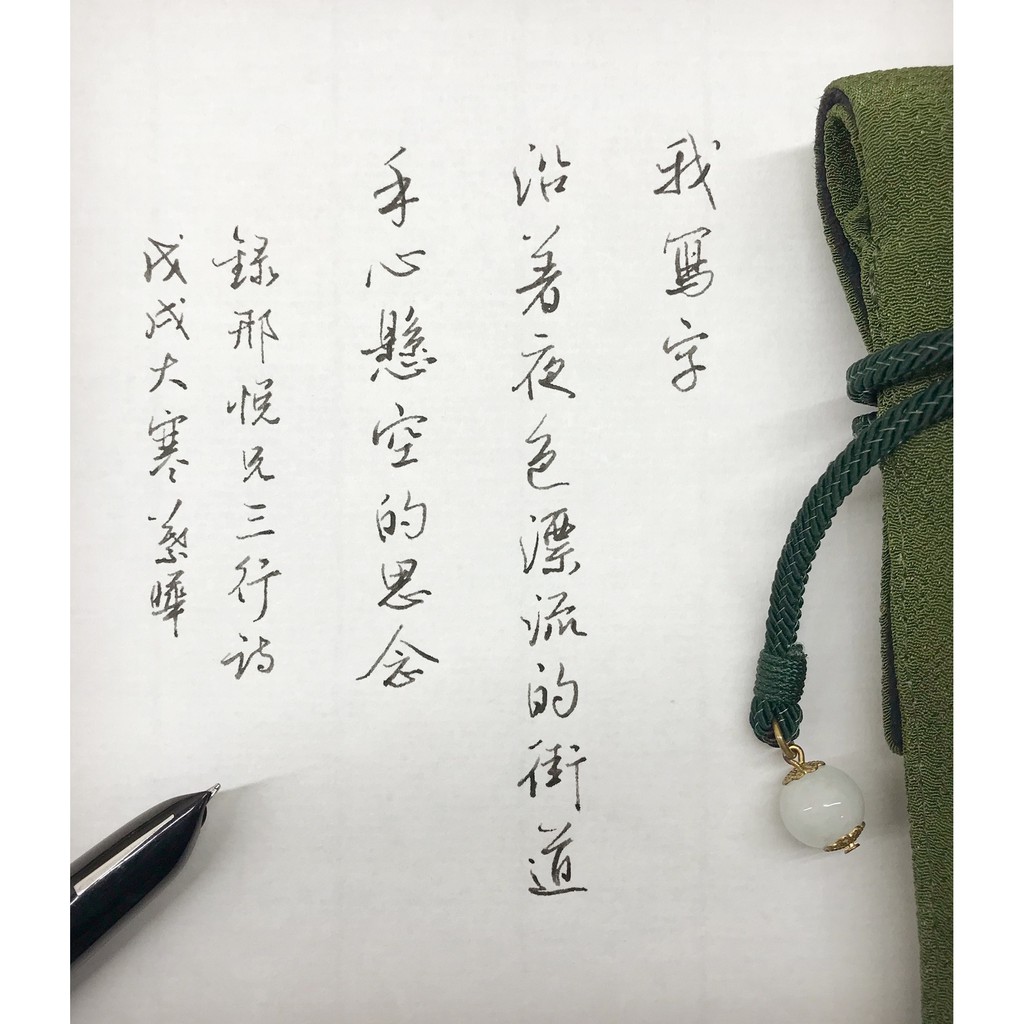 我寫字
沿著夜色漂流的街道
手心懸空的思念
錄那悅兄三行詩
戊戌大寒 蘩曄